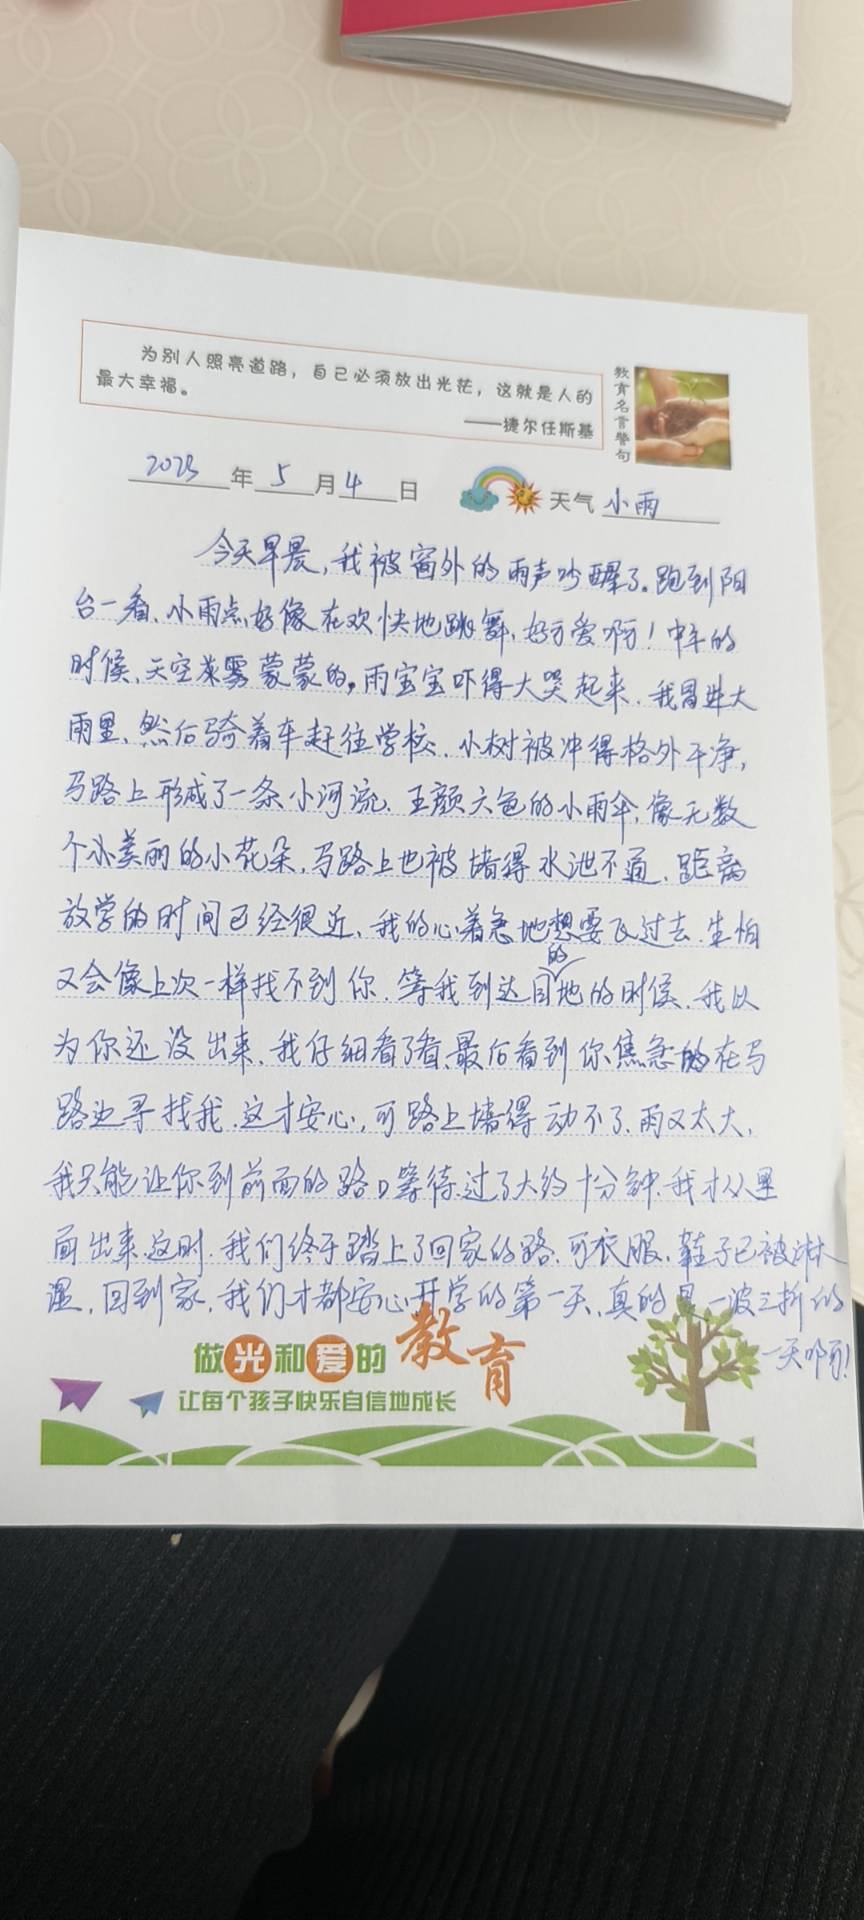 为别人照亮道路，自己必须放出光芒，这就是人的
最大幸福。
——捷尔任斯基
教育名言警句
2023年5月4日 天气 小雨
今天早晨，我被窗外的雨声吵醒了。跑到阳
台一看、小雨点好像在欢快地跳舞，好可爱啊！中午的
时候、天空茫雾蒙蒙的，雨宝宝吓得大哭起来、我冒进大
雨里、然后骑着车赶往学校、小树被冲得格外干净，
马路上形成了一条小河流、五颜六色的小雨伞，像无数
个美丽的小花朵，马路上也被堵得水泄不通、距离
放学的时间已经很近、我的心着急地想要飞过去、生怕
又会像上次一样找不到你、等我到达目的地的时候、我以
为你还没出来、我仔细看了看、最后看到你焦急的在马
路边寻找我、这才安心，可路上堵得动不了、雨又太大，
我只能让你到前面的路口等待、过了大约十分钟、我才从里
面出来、这时、我们终于踏上了回家的路、可衣服、鞋子已被淋
湿、回到家、我们才都安心、开学的第一天、真的是一波三折的
一天啊！
做光和爱的教育
让每个孩子快乐自信地成长